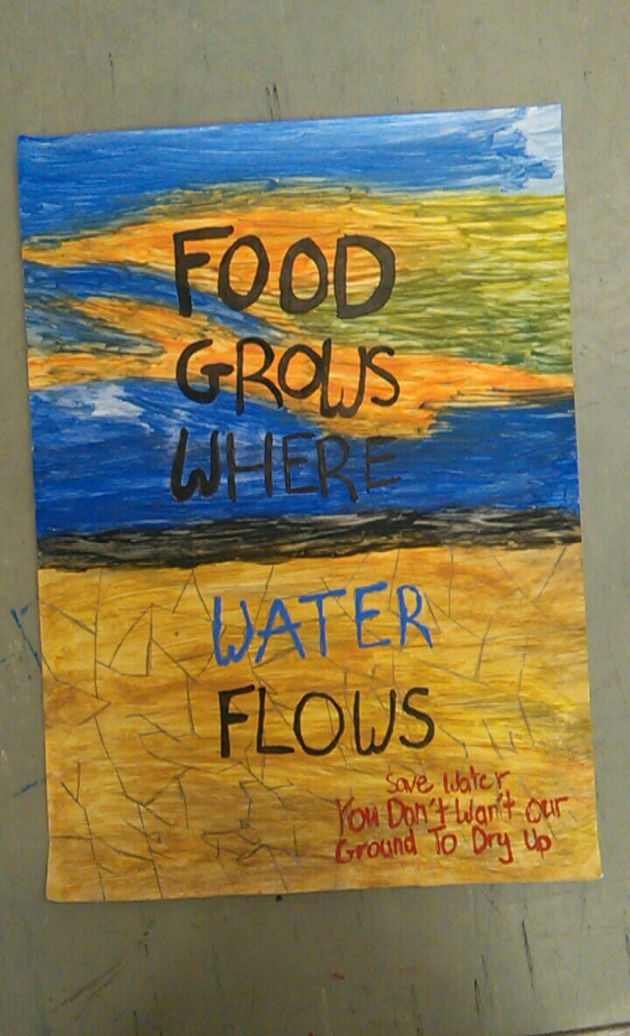 FOOD
GROWS
WHERE
WATER
FLOWS
Save Water
You Don't Want Our
Ground To Dry Up